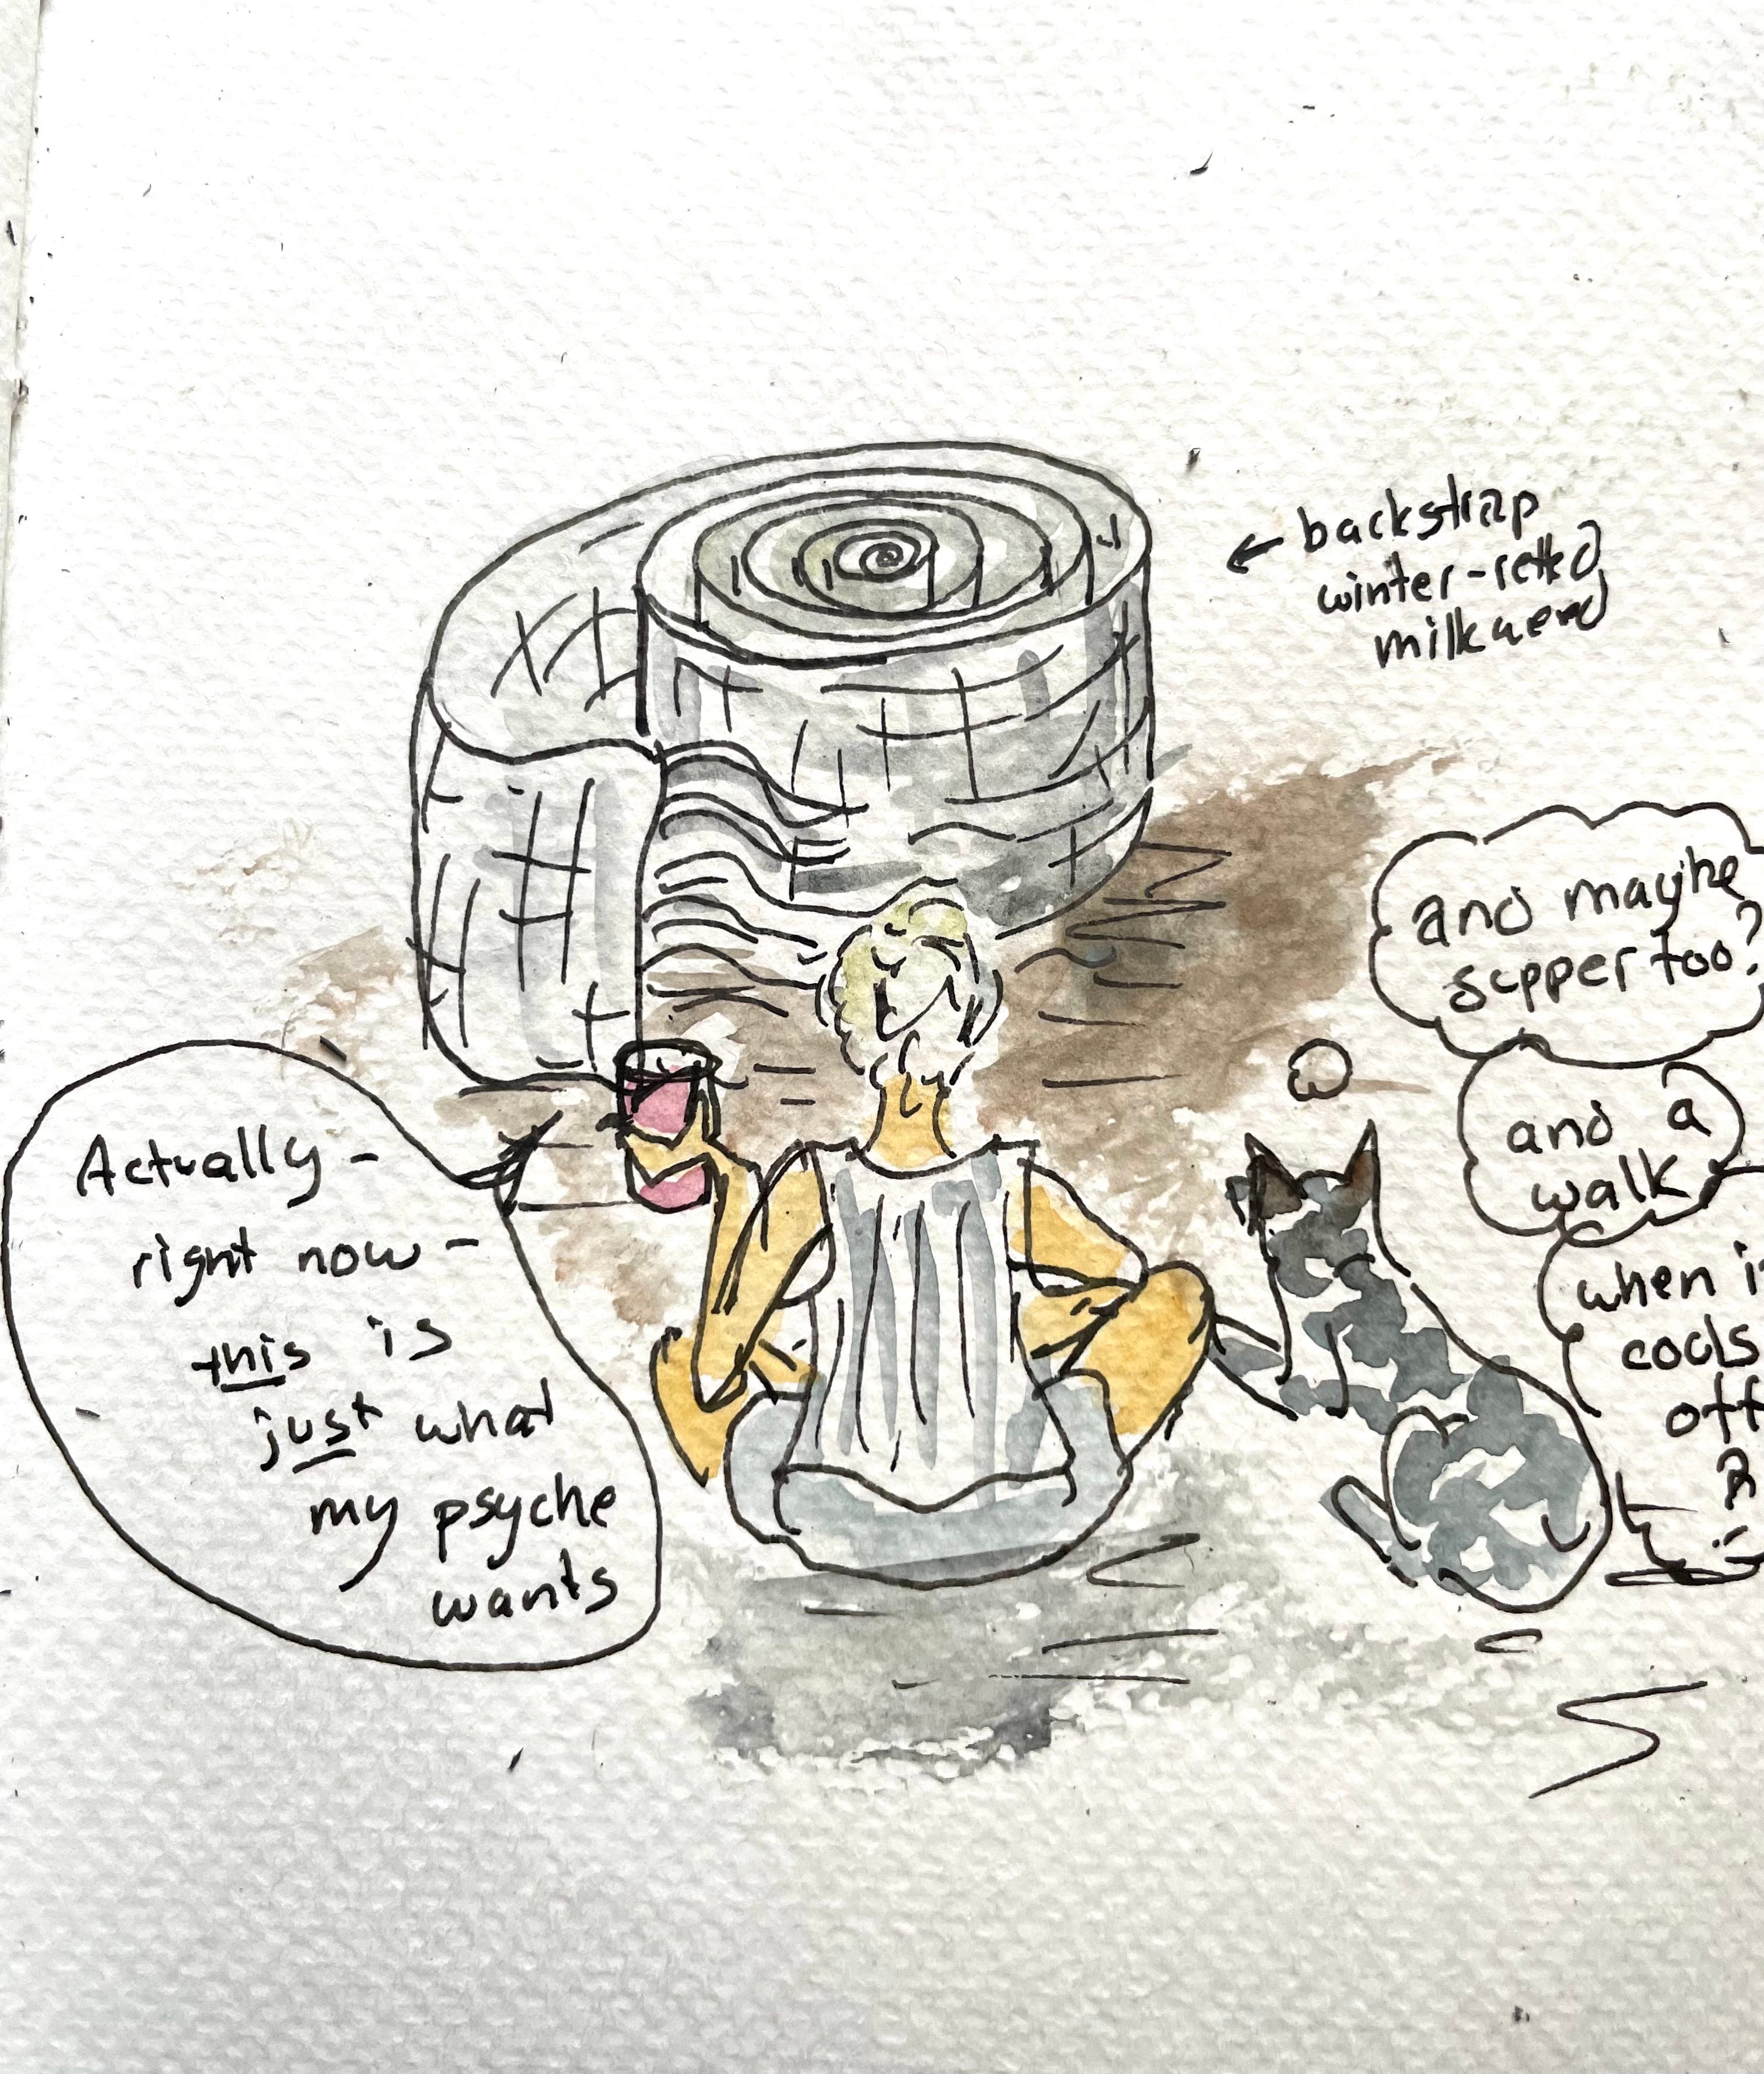 ← backstrap
winter-retted
milkweed
and maybe
supper too?
and a
walk
when i
cools
off
?
Actually -
right now -
this is
just what
my psyche
wants